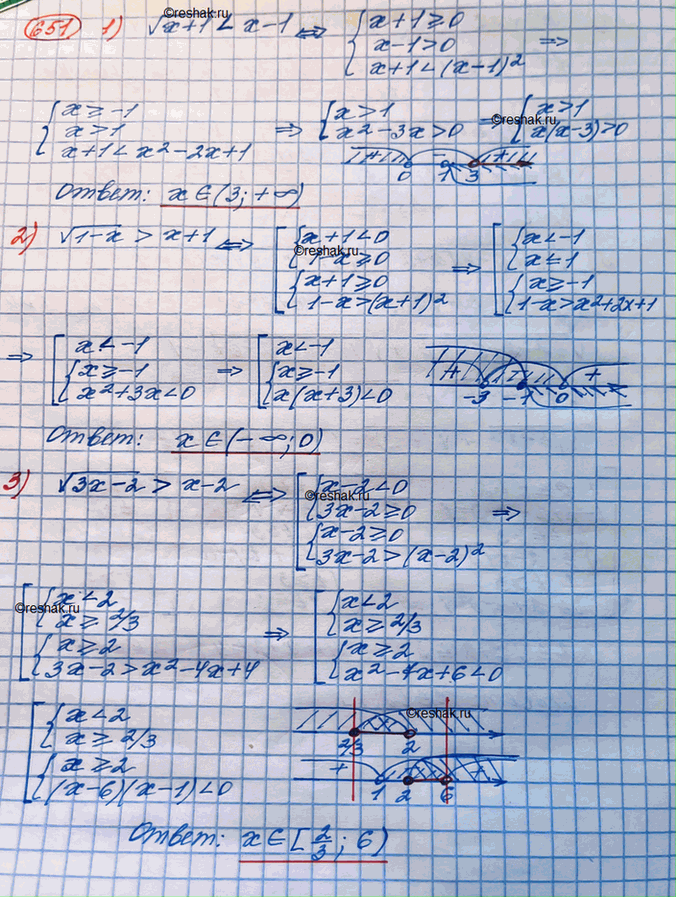 ©reshak.ru
651 1) √x+1 < x-1 ⇔ { x+1≥0
x-1>0
x+1<(x-1)² ⇒
{ x≥-1
x>1
x+1<x²-2x+1 ⇒ { x>1
x²-3x>0 ⇒ { x>1
x(x-3)>0
©reshak.ru
+ + 0 1 3
Ответ: x∈(3;+∞)
2) √1-x > x+1 ⇔ [ { x+1<0
1-x≥0
{ x+1≥0
1-x>(x+1)² ⇒ [ { x<-1
x≤1
{ x≥-1
1-x>x²+2x+1
©reshak.ru
⇒ [ x<-1
{ x≥-1
x²+3x<0 ⇒ [ x<-1
{ x≥-1
x(x+3)<0
+ - + -3 -1 0
Ответ: x∈(-∞;0)
3) √3x-2 > x-2 ⇔ [ { x-2<0
3x-2≥0
{ x-2≥0
3x-2>(x-2)² ⇒
©reshak.ru
[ { x<2
x≥2/3
{ x≥2
3x-2>x²-4x+4 ⇒ [ { x<2
x≥2/3
{ x≥2
x²-7x+6<0
©reshak.ru
[ { x<2
x≥2/3
{ x≥2
(x-6)(x-1)<0
©reshak.ru
2/3 2
+ - + 1 2 6
Ответ: x∈[2/3; 6)